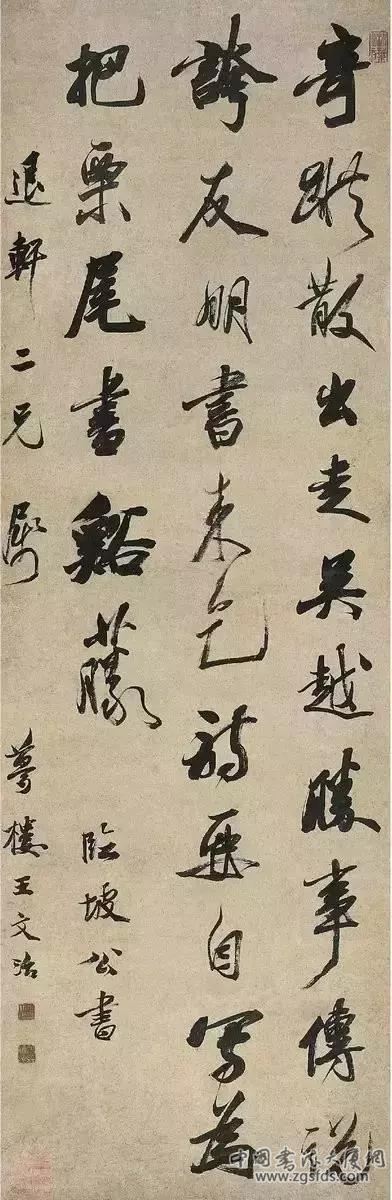 奇蹤散出走吳越勝事傳說
誇友朋書來乞詩要自寫為
把栗尾書谿藤
臨坡公書
退軒二兄屬
夢樓王文治
中国書法大厦網
www.zgsfds.com